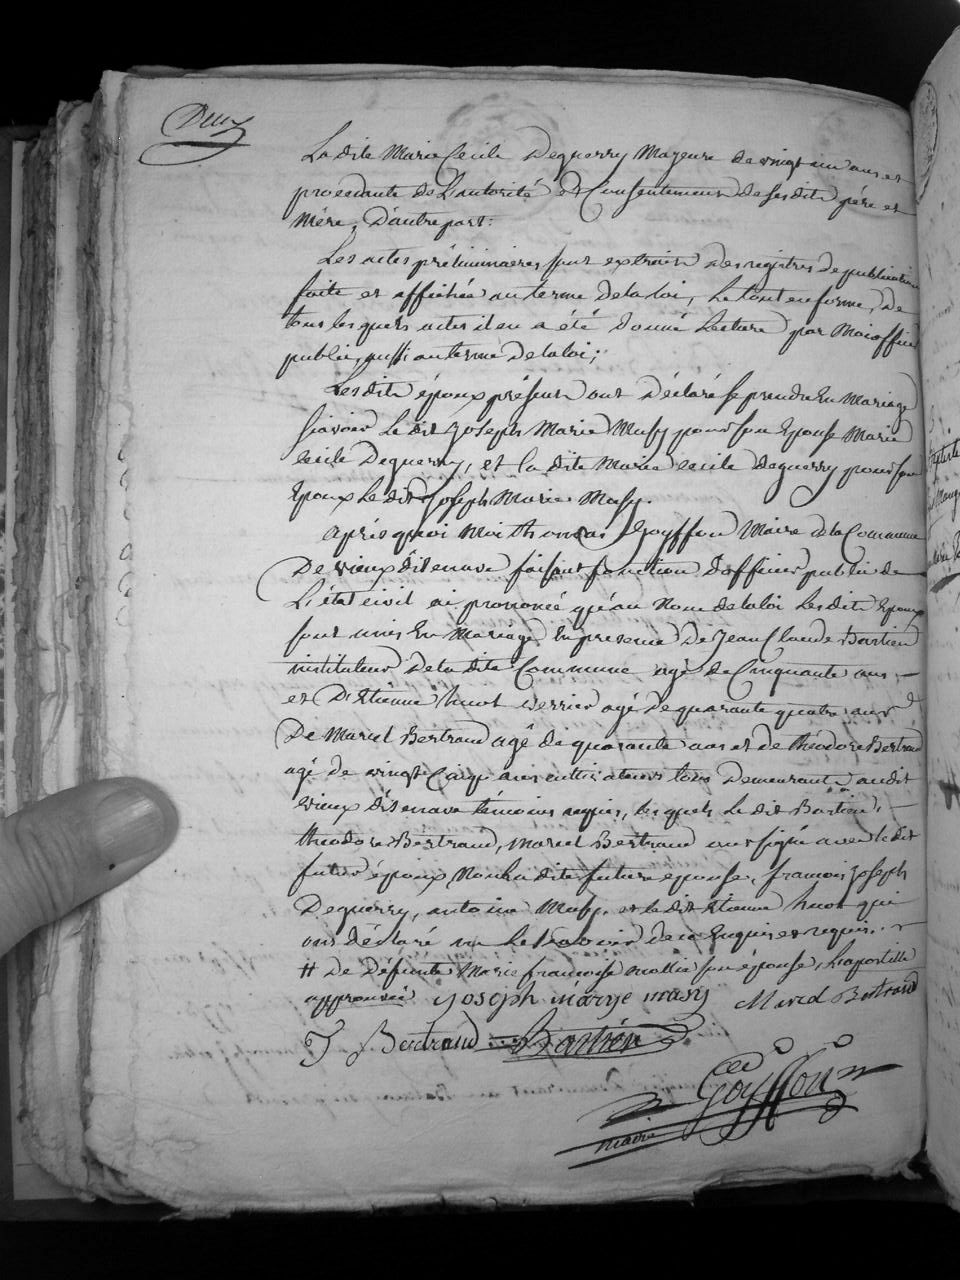 Deux
La dite Marie Cecile Deguerry Majeure de vingt un ans et
procedante de L'autorité et Consentement de ses dits père et
Mère, D'autre part:
Les actes préliminaires sont extraits des registres de publication
faite et affichée au terme de la loi, Le tout en forme, De
tous lesquels actes il en a été donné Lecture par Moi officier
public, aussi au terme de la loi;
Les dits époux présents ont Déclaré se prendre En Mariage
savoir Le dit Joseph Marie Masy pour son Epouse Marie
Cecile Deguerry, et la dite Marie Cecile deguerry pour son
Epoux Le dit Joseph Marie Masy.
après quoi Moi thomas Goyffon Maire de la Commune
De vieux disenave faisant fonction D'officier public de
L'état civil ai prononcé qu'au Nom de la loi Les dits Epoux
sont unis En Mariage En presence De Jean Claude Bartien
instituteur De la dite Commune agé de Cinquante ans
et D'Etienne huot verrier agé De quarante quatre ans
De Marcel Bertrand agé de quarante ans et de théodore Bertrand
agé De vingt Cinq ans cultivateurs tous Demeurants audit
vieux disenave témoins requis, lesquels Le dit Bartien,
theodore Bertrand, Marcel Bertrand ont signé avec le dit
futur époux Non la dite future épouse, françois Joseph
Deguerry, antoine Masy, et le dit Etienne huot qui
ont déclaré ne Le Savoir de ce Enquis et requis.
# De Défunte Marie françoise mollie son épouse, L'apostille
approuvée joseph marye masy Marcel Bertrand
T Bertrand Bartien
Goyffon
maire